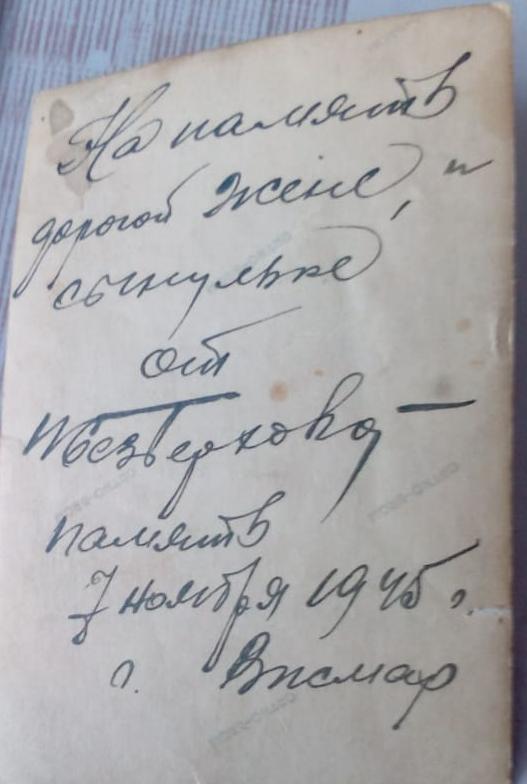 На память
дорогой жене, и
сынульке
от
память
7 ноября 1945 г.
г. Висмар